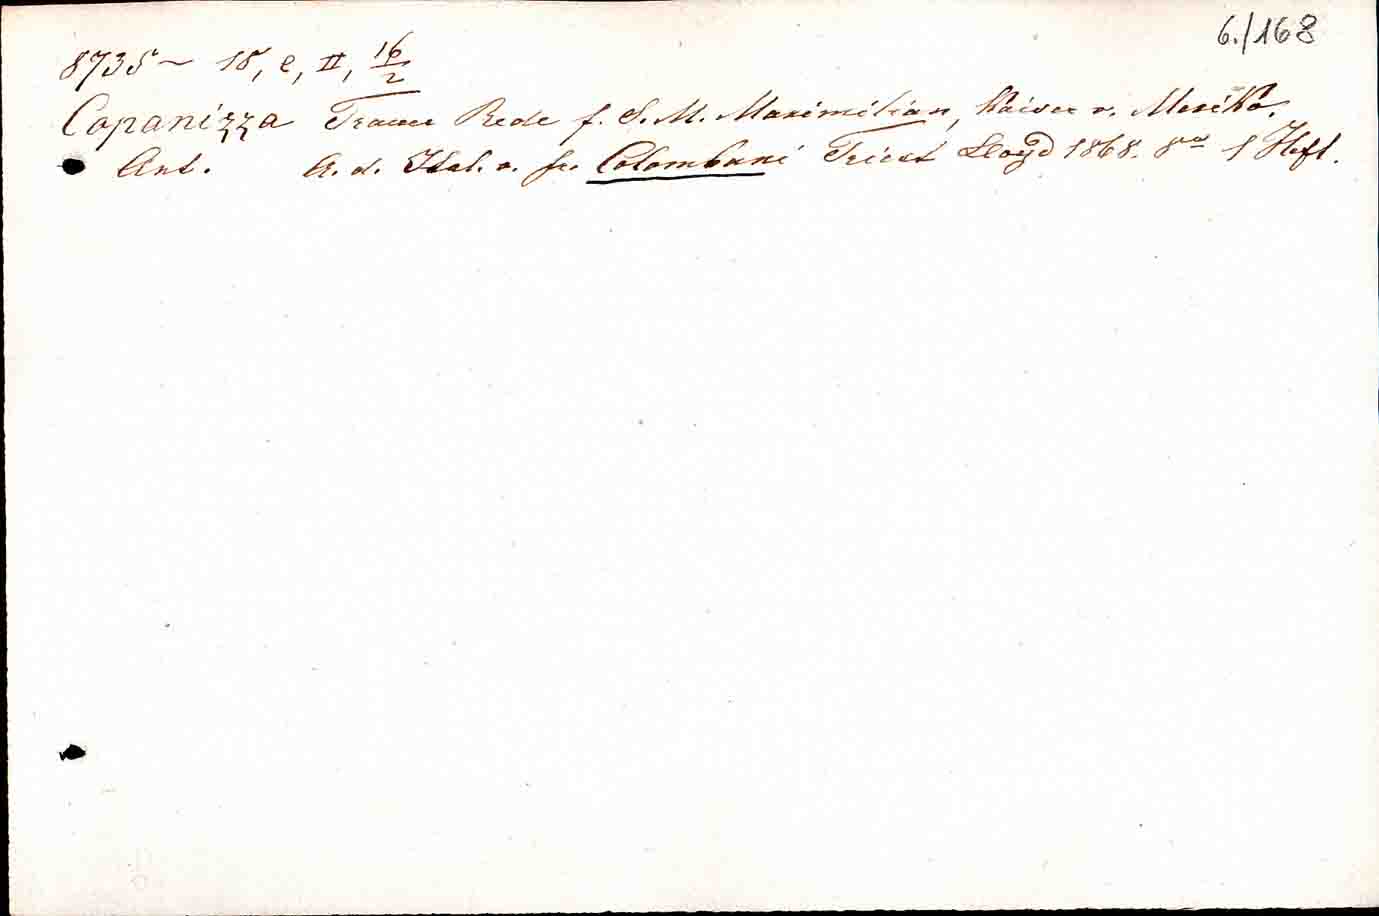 6./168
8735~ 18, e, II, 16/2
Copanizza Trauer Rede f. S. M. Maximilian, Kaiser v. Mexiko.
Ant. A. d. Ital. v. Fr. Colombani Triest Lloyd 1868. 8vo 1 Heft.